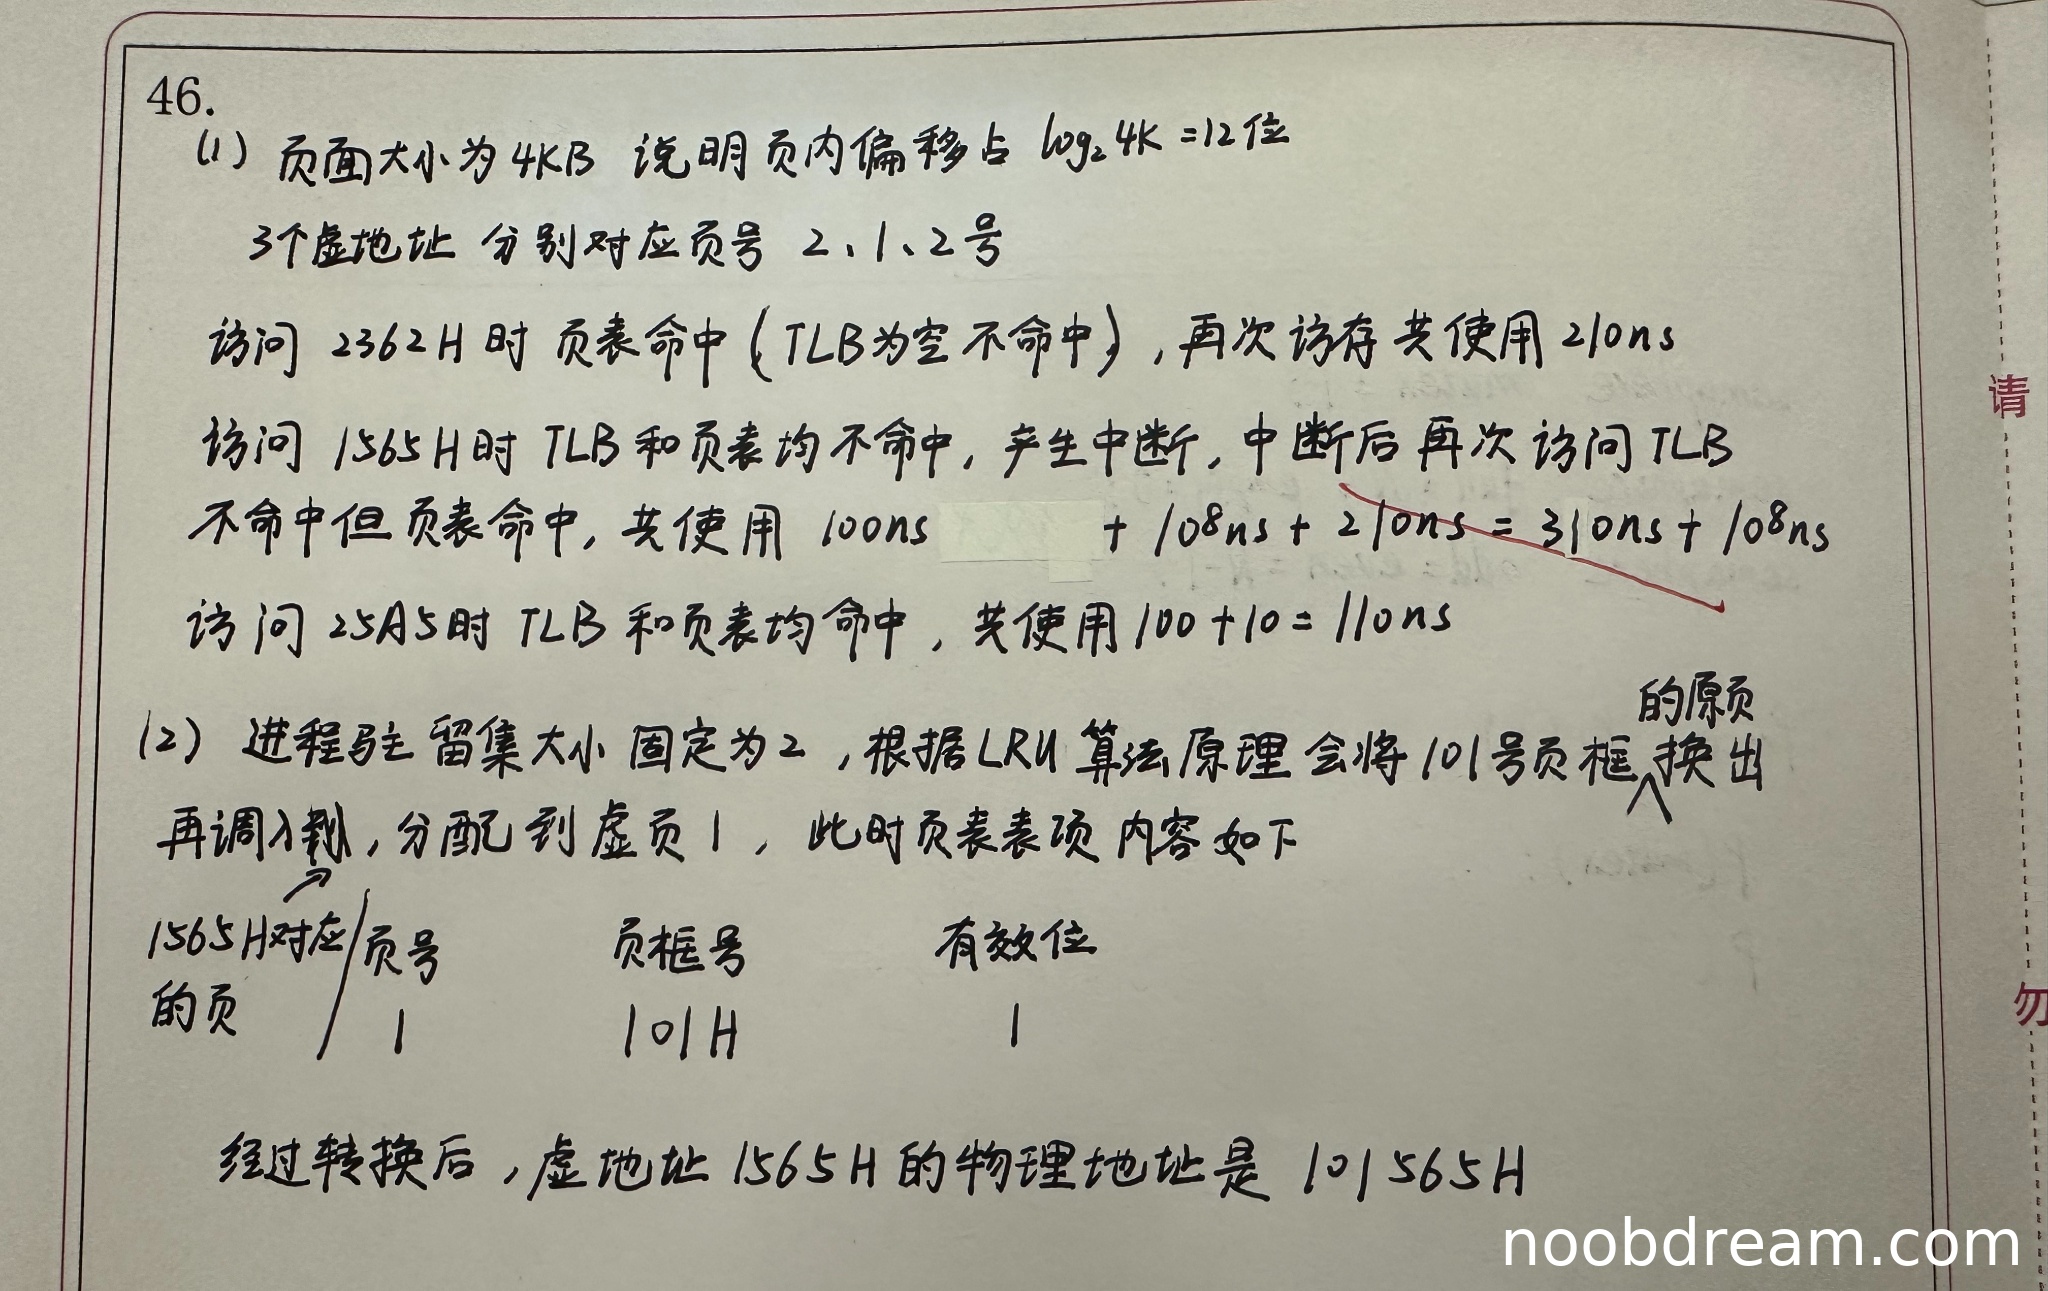 46.
(1) 页面大小为4KB 说明页内偏移占 log₂4K=12位
3个虚地址 分别对应页号 2、1、2号
访问 2362H 时 页表命中(TLB为空不命中),再次访存共使用210ns
访问 1565H时 TLB和页表均不命中,产生中断,中断后再次访问TLB
不命中但页表命中,共使用 100ns + 10⁸ns + 210ns = 310ns + 10⁸ns
访问 25A5时 TLB和页表均命中,共使用100+10=110ns
的原页
(2) 进程驻留集大小固定为2,根据LRU算法原理会将101号页框换出
再调入,分配到虚页1,此时页表表项内容如下
1565H对应的页
页号 页框号 有效位
1 101H 1
经过转换后,虚地址1565H的物理地址是 101565H
请
勿
noobdream.com